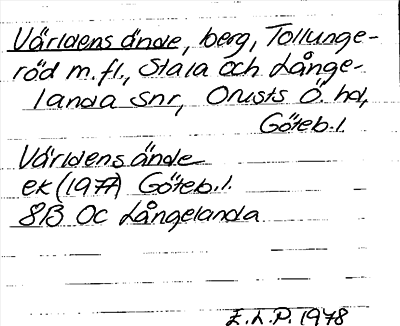 Världens ände, berg, Tollunge-
röd m.fl., Stala och Långe-
landa snr, Orusts Ö. hd,
Göteb.l.
Världens ände
ek (1977) Göteb.l.
8B 0c Långelanda
E.L.P. 1978